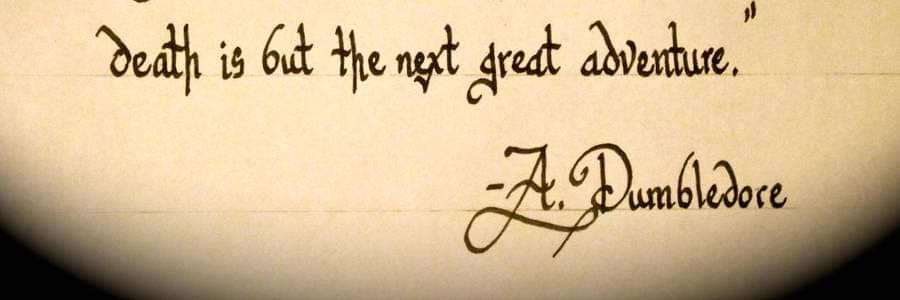 death is but the next great adventure."
-A. Dumbledore